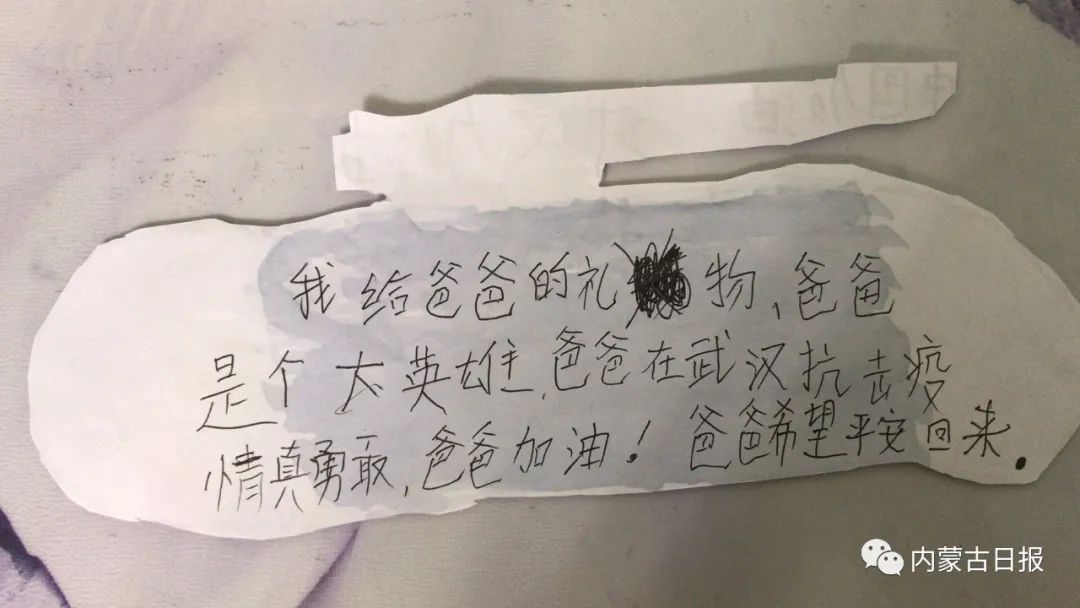 中国加油
我给爸爸的礼物、爸爸
是个太英雄,爸爸在武汉抗去疫
情真勇敢,爸爸加油!爸爸希望平安回来.
内蒙古日报